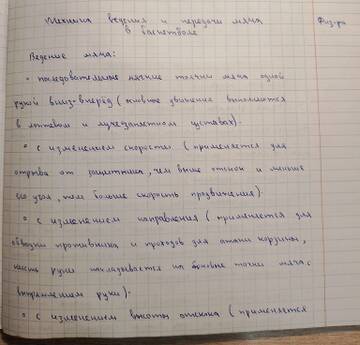 Техника ведения и передачи мяча
в баскетболе
Физ-ра
Ведение мяча:
• последовательные мягкие толчки мяча одной
рукой вниз-вперёд (основное движение выполняется
в локтевом и лучезапястном суставах).
• с изменением скорости (применяется для
отрыва от защитника, чем выше отскок и меньше
его угол, тем больше скорость продвижения).
• с изменением направления (применяется для
обводки противника и проходов для атаки корзины,
кисть руки накладывается на боковые точки мяча с
выпрямлением руки).
• с изменением высоты отскока (применяется